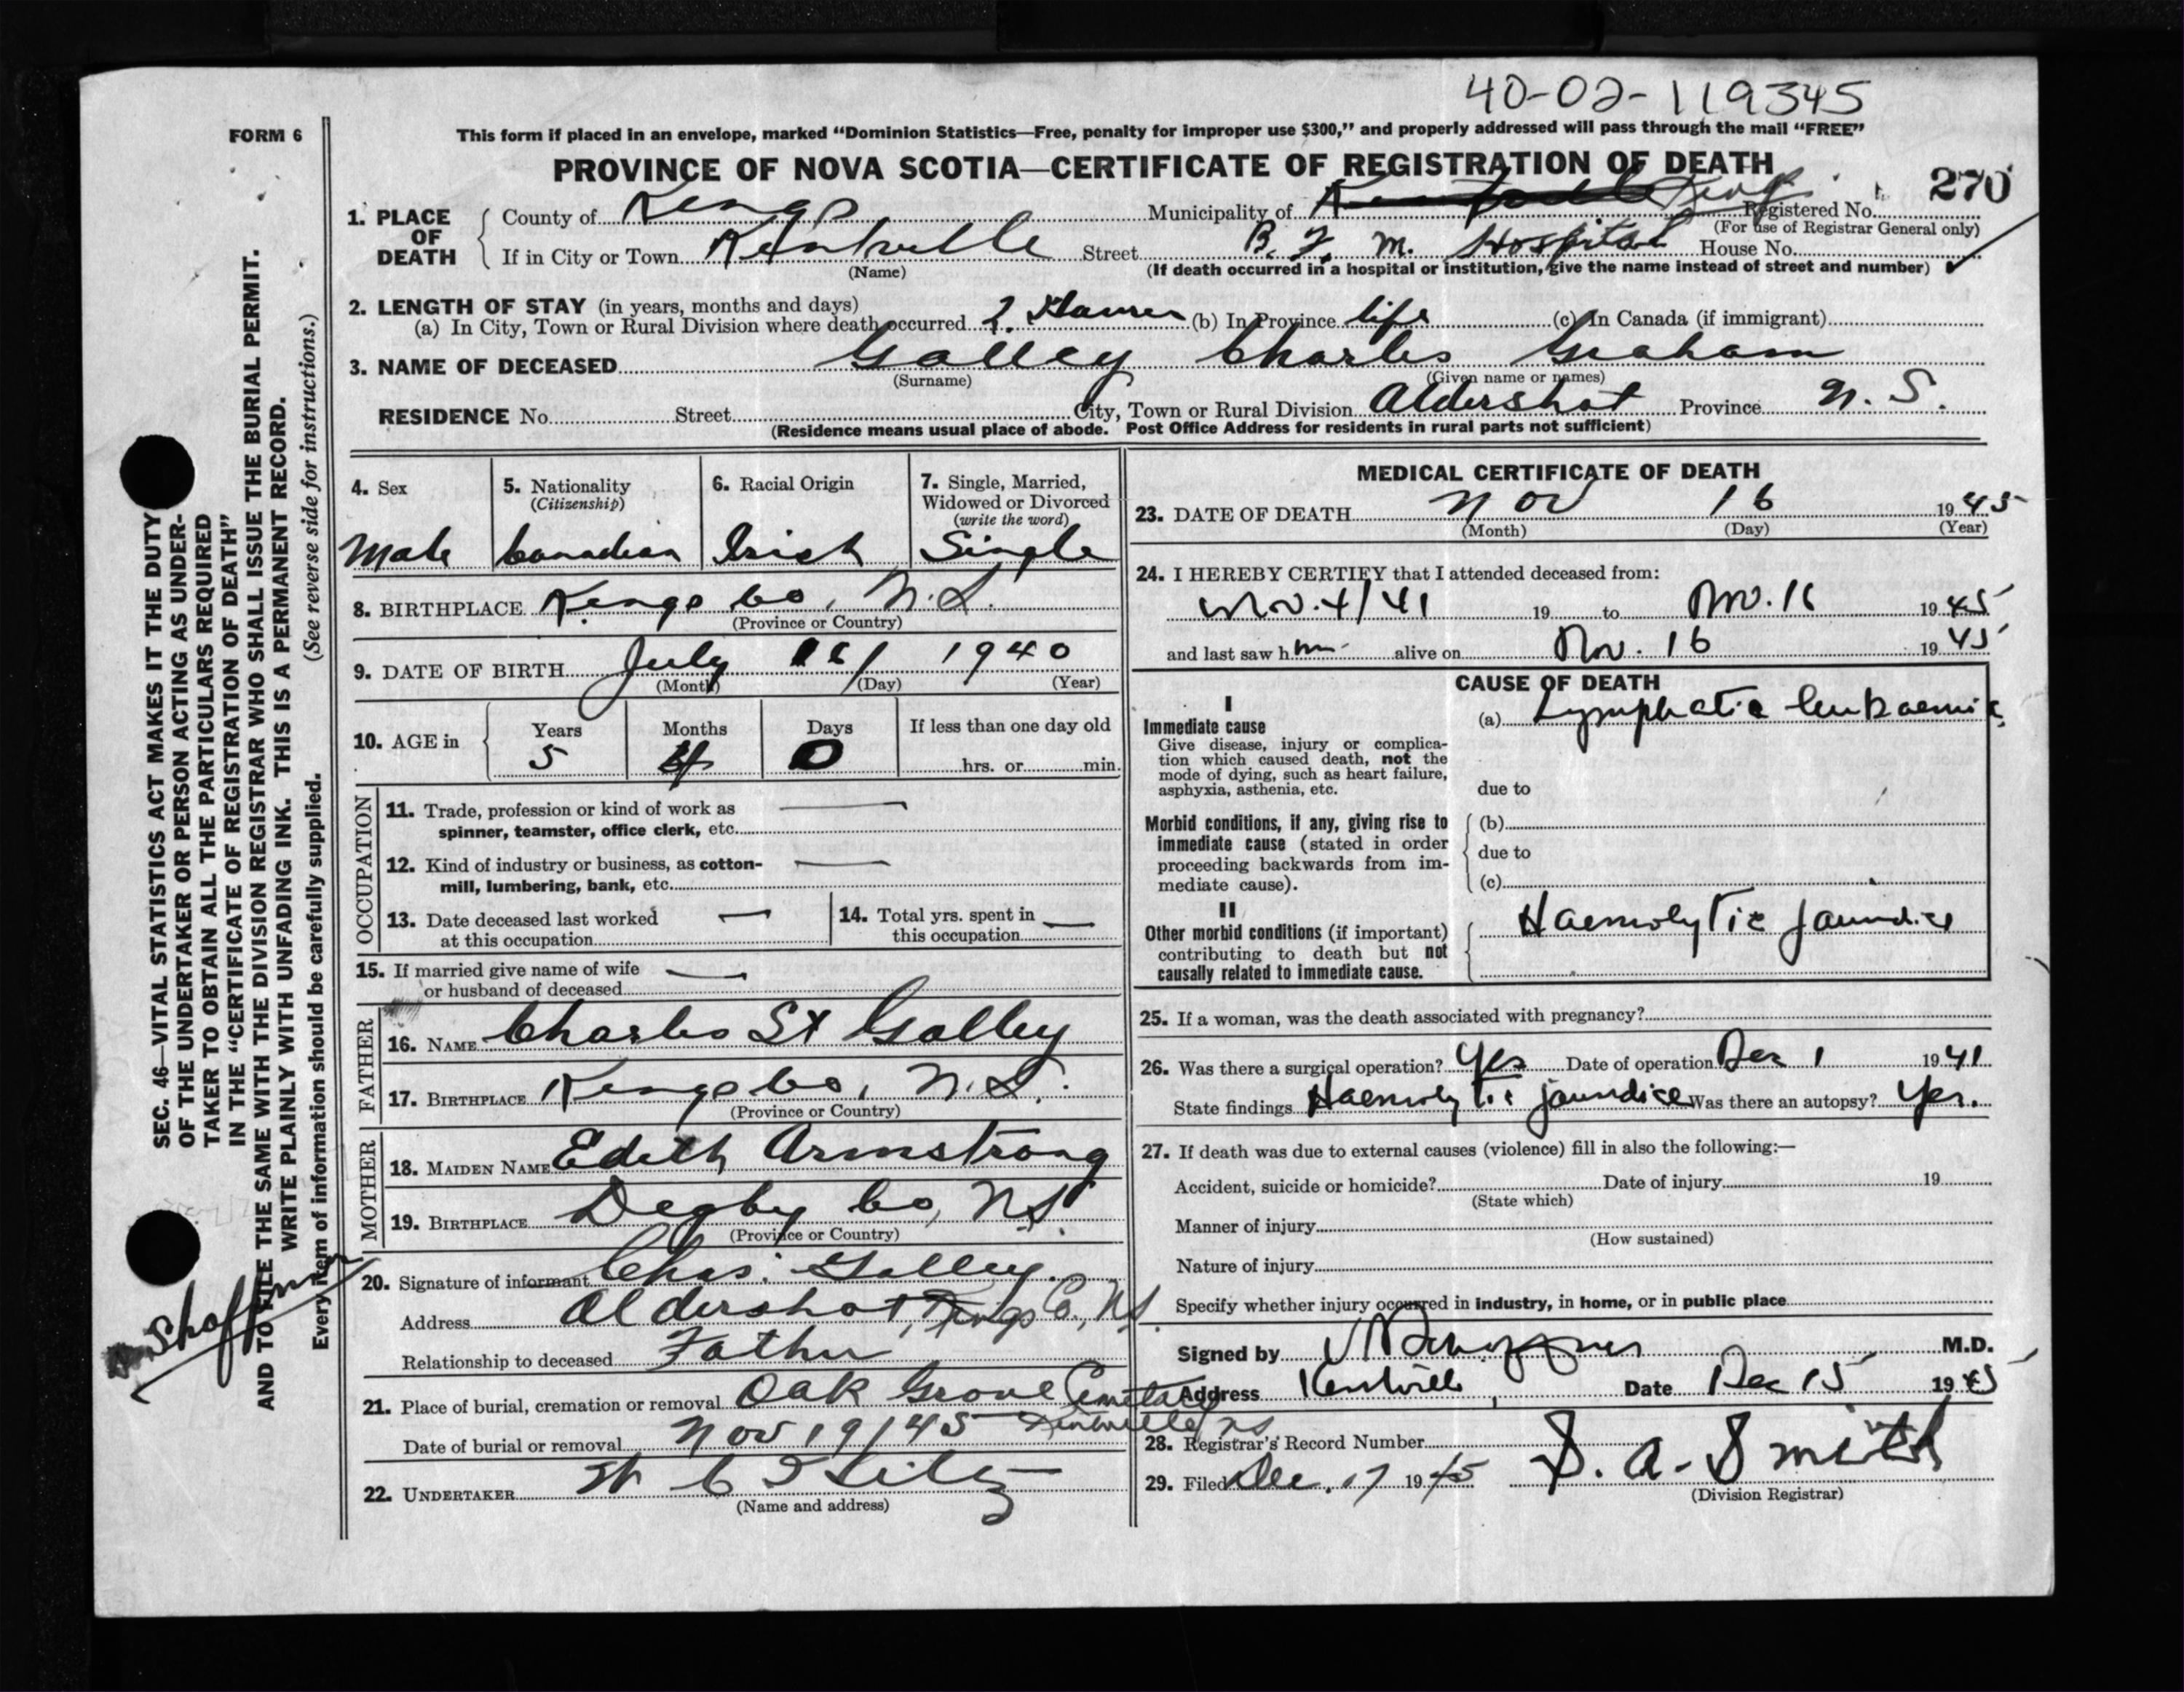 40-02-119345
FORM 6
This form if placed in an envelope, marked “Dominion Statistics—Free, penalty for improper use $300,” and properly addressed will pass through the mail “FREE”
PROVINCE OF NOVA SCOTIA—CERTIFICATE OF REGISTRATION OF DEATH
270
1. PLACE OF DEATH
County of Kings Municipality of Kings Registered No.
(For use of Registrar General only)
If in City or Town Kentville Street B. F. M. Hospital House No.
(Name) (If death occurred in a hospital or institution, give the name instead of street and number)
2. LENGTH OF STAY (in years, months and days)
(a) In City, Town or Rural Division where death occurred (b) In Province life (c) In Canada (if immigrant)
3. NAME OF DECEASED Galley Charles Graham
(Surname) (Given name or names)
RESIDENCE No. Street City, Town or Rural Division Aldershot Province N. S.
(Residence means usual place of abode. Post Office Address for residents in rural parts not sufficient)
4. Sex
Male
5. Nationality
(Citizenship)
Canadian
6. Racial Origin
Irish
7. Single, Married,
Widowed or Divorced
(write the word)
Single
8. BIRTHPLACE Kings Co, N.S.
(Province or Country)
9. DATE OF BIRTH July 1940
(Month) (Day) (Year)
10. AGE in
Years Months Days If less than one day old
5 4 0 hrs. or min.
OCCUPATION
11. Trade, profession or kind of work as
spinner, teamster, office clerk, etc.
12. Kind of industry or business, as cotton-
mill, lumbering, bank, etc.
13. Date deceased last worked
at this occupation
14. Total yrs. spent in
this occupation
15. If married give name of wife
or husband of deceased
FATHER
16. NAME Charles St Galley
17. BIRTHPLACE Kings Co, N.S.
(Province or Country)
MOTHER
18. MAIDEN NAME Edith Armstrong
19. BIRTHPLACE Degby Co, N.S.
(Province or Country)
20. Signature of informant Chas. Galley
Address Aldershot, Kings Co., N.S.
Relationship to deceased Father
21. Place of burial, cremation or removal Oak Grove Cemetary
Kentville N.S.
Date of burial or removal Nov 19/45
22. UNDERTAKER
(Name and address)
MEDICAL CERTIFICATE OF DEATH
23. DATE OF DEATH Nov 16 1945
(Month) (Day) (Year)
24. I HEREBY CERTIFY that I attended deceased from:
Nov. 4/41 19 to Nov. 16 1945
and last saw him alive on Nov. 16 1945
CAUSE OF DEATH
I
Immediate cause
Give disease, injury or complica-
tion which caused death, not the
mode of dying, such as heart failure,
asphyxia, asthenia, etc.
(a) Lymphatic leukaemia
due to
Morbid conditions, if any, giving rise to
immediate cause (stated in order
proceeding backwards from im-
mediate cause).
(b)
due to
(c)
II
Other morbid conditions (if important)
contributing to death but not
causally related to immediate cause.
Haemolytic jaundice
25. If a woman, was the death associated with pregnancy?
26. Was there a surgical operation? Yes Date of operation Dec 1 1941
State findings Haemolytic jaundice Was there an autopsy? Yes.
27. If death was due to external causes (violence) fill in also the following:—
Accident, suicide or homicide? Date of injury 19
(State which)
Manner of injury
(How sustained)
Nature of injury
Specify whether injury occurred in industry, in home, or in public place
Signed by M.D.
Address Kentville, Date Dec 15 1945
28. Registrar's Record Number
29. Filed Dec. 17 1945 S. A. Smith
(Division Registrar)
SEC. 46—VITAL STATISTICS ACT MAKES IT THE DUTY
OF THE UNDERTAKER OR PERSON ACTING AS UNDER-
TAKER TO OBTAIN ALL THE PARTICULARS REQUIRED
IN THE “CERTIFICATE OF REGISTRATION OF DEATH”
AND TO FILE THE SAME WITH THE DIVISION REGISTRAR WHO SHALL ISSUE THE BURIAL PERMIT.
WRITE PLAINLY WITH UNFADING INK. THIS IS A PERMANENT RECORD.
(See reverse side for instructions.)
Every item of information should be carefully supplied.
Shaffner